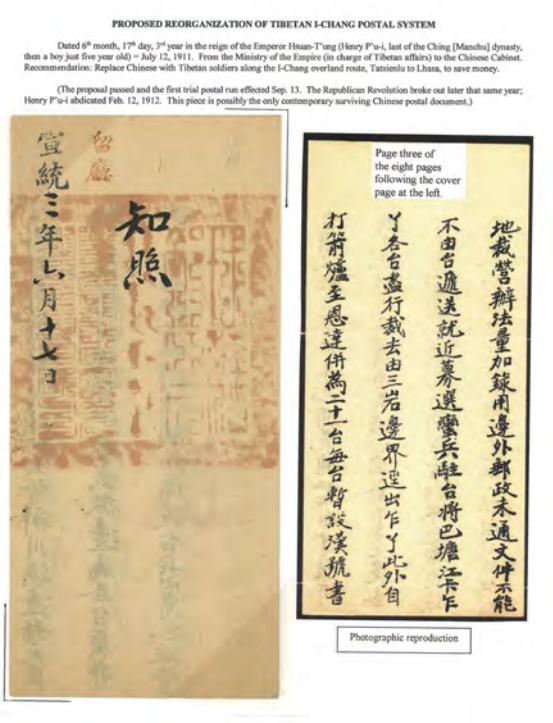 PROPOSED REORGANIZATION OF TIBETAN I-CHANG POSTAL SYSTEM
Dated 6th month, 17th day, 3rd year in the reign of the Emperor Hsuan-T'ung (Henry P'u-i, last of the Ching [Manchu] dynasty,
then a boy just five year old) = July 12, 1911. From the Ministry of the Empire (in charge of Tibetan affairs) to the Chinese Cabinet.
Recommendation: Replace Chinese with Tibetan soldiers along the I-Chang overland route, Tatsienlu to Lhasa, to save money.
(The proposal passed and the first trial postal run effected Sep. 13. The Republican Revolution broke out later that same year;
Henry P'u-i abdicated Feb. 12, 1912. This piece is possibly the only contemporary surviving Chinese postal document.)
留廳
知照
宣統三年六月十七日
Page three of
the eight pages
following the cover
page at the left.
地裁營辦法量加錄用邊外郵政未通文件不能
不由台遞送就近募選蠻兵駐台將巴塘江卡乍
丫叅台盡行裁去由三岩邊界逕出乍丫此外自
打箭爐至恩達併為二十一台每台暫設漢號書
Photographic reproduction